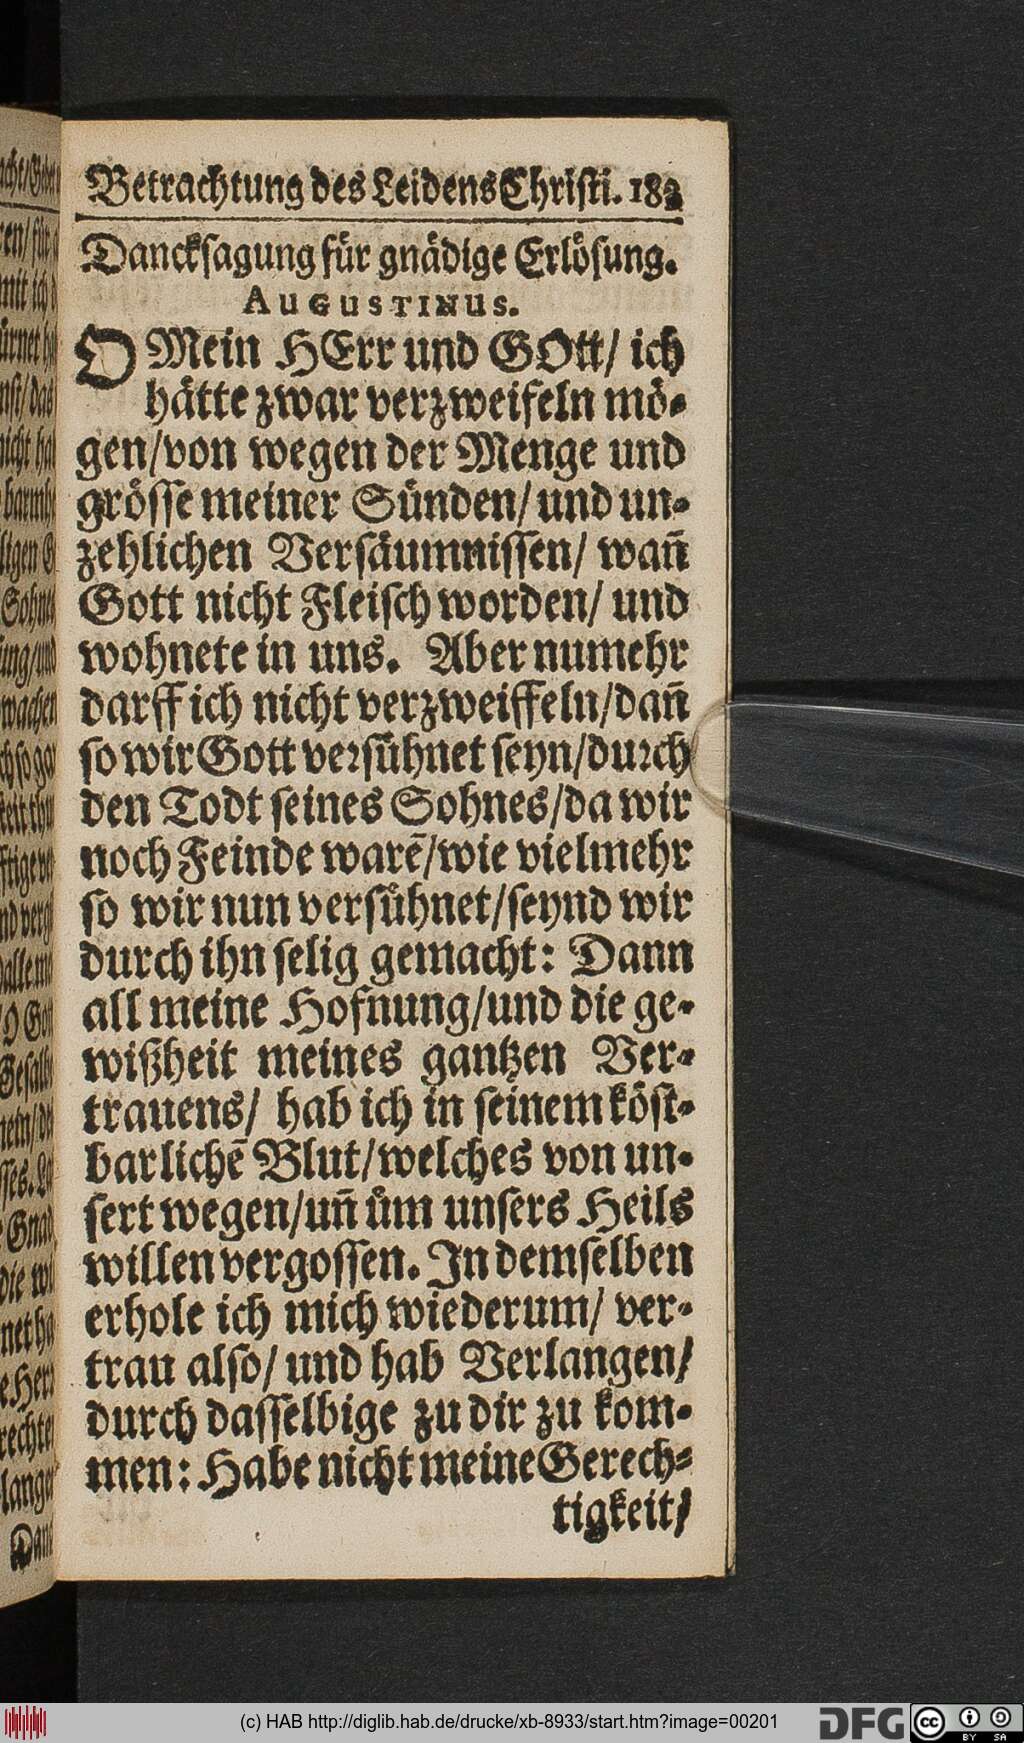 Betrachtung des Leidens Christi. 183
Dancksagung für gnädige Erlösung.
AUGUSTINUS.
O Mein HErr und GOtt/ ich
hätte zwar verzweifeln mö-
gen/von wegen der Menge und
grösse meiner Sünden/ und un-
zehlichen Versäumnissen/ wañ
Gott nicht Fleisch worden/ und
wohnete in uns. Aber numehr
darff ich nicht verzweiffeln/dañ
so wir Gott versühnet seyn/durch
den Todt seines Sohnes/da wir
noch Feinde warē/wie vielmehr
so wir nun versühnet/seynd wir
durch ihn selig gemacht: Dann
all meine Hofnung/und die ge-
wißheit meines gantzen Ver-
trauens/ hab ich in seinem köst-
barlichē Blut/welches von un-
sert wegen/uñ üm unsers Heils
willen vergossen. In demselben
erhole ich mich wiederum/ ver-
trau also/ und hab Verlangen/
durch dasselbige zu dir zu kom-
men: Habe nicht meine Gerech-
tigkeit/
(c) HAB http://diglib.hab.de/drucke/xb-8933/start.htm?image=00201
DFG
cc
BY SA